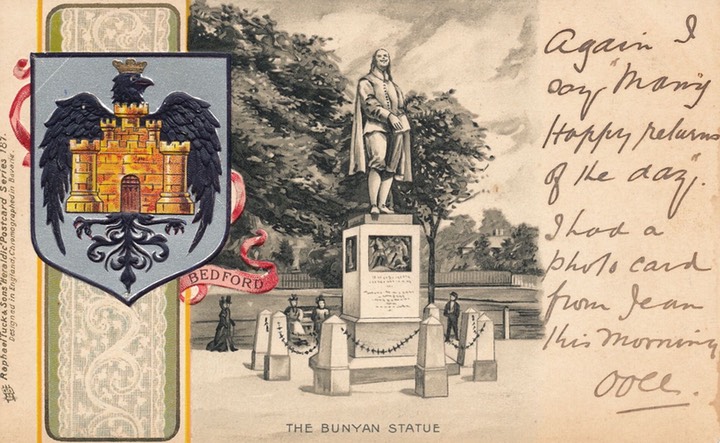 Raphael Tuck & Sons' "Heraldic" Postcard Series 187.
Designed in England, Chromographed in Bavaria.
BEDFORD
THE BUNYAN STATUE
Again I
say "Many
Happy returns
of the day".
I had a
photo card
from Jean
this morning